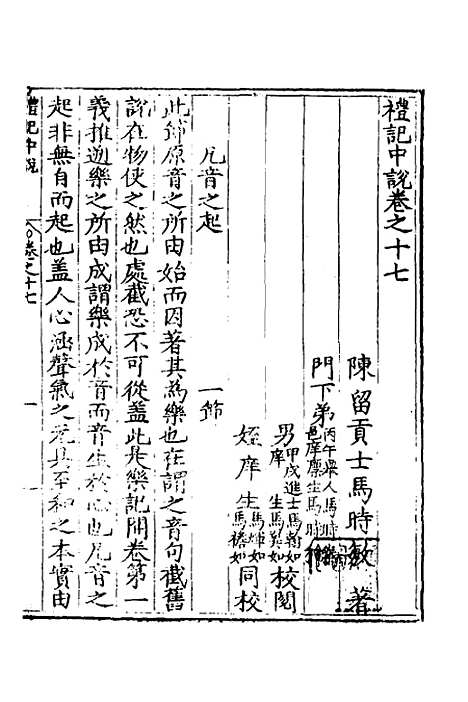 禮記中說卷之十七
陳留貢士馬時敏著
門下弟
丙午舉人馬時
邑庠廩生馬時
男
甲戌進士馬翰如
庠生馬如
校閱
姪庠生
馬如
馬如
同校
凡音之起 一節
此節原音之所由始而因著其為樂也在謂之音句截舊
說在物使之然也處截恐不可從蓋此是樂記開卷第一
義推邇樂之所由成謂樂成於音而音生於心也凡音之
起非無自而起也蓋人心涵聲氣之元具至和之本實由
禮記中說 卷之十七 一